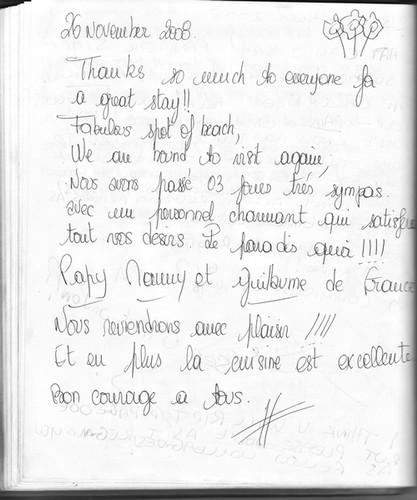 26 November 2008.
Thanks so much to everyone for
a great stay!!
Fabulous spot of beach,
We are bound to visit again,
Nous avons passé 03 jours très sympas.
avec un personnel charmant qui satisfera
tout vos désirs. Le paradis quoi !!!!
Papy Nanny et Guillaume de France
Nous reviendrons avec plaisir !!!!
Et en plus la cuisine est excellente
Bon courage a tous.